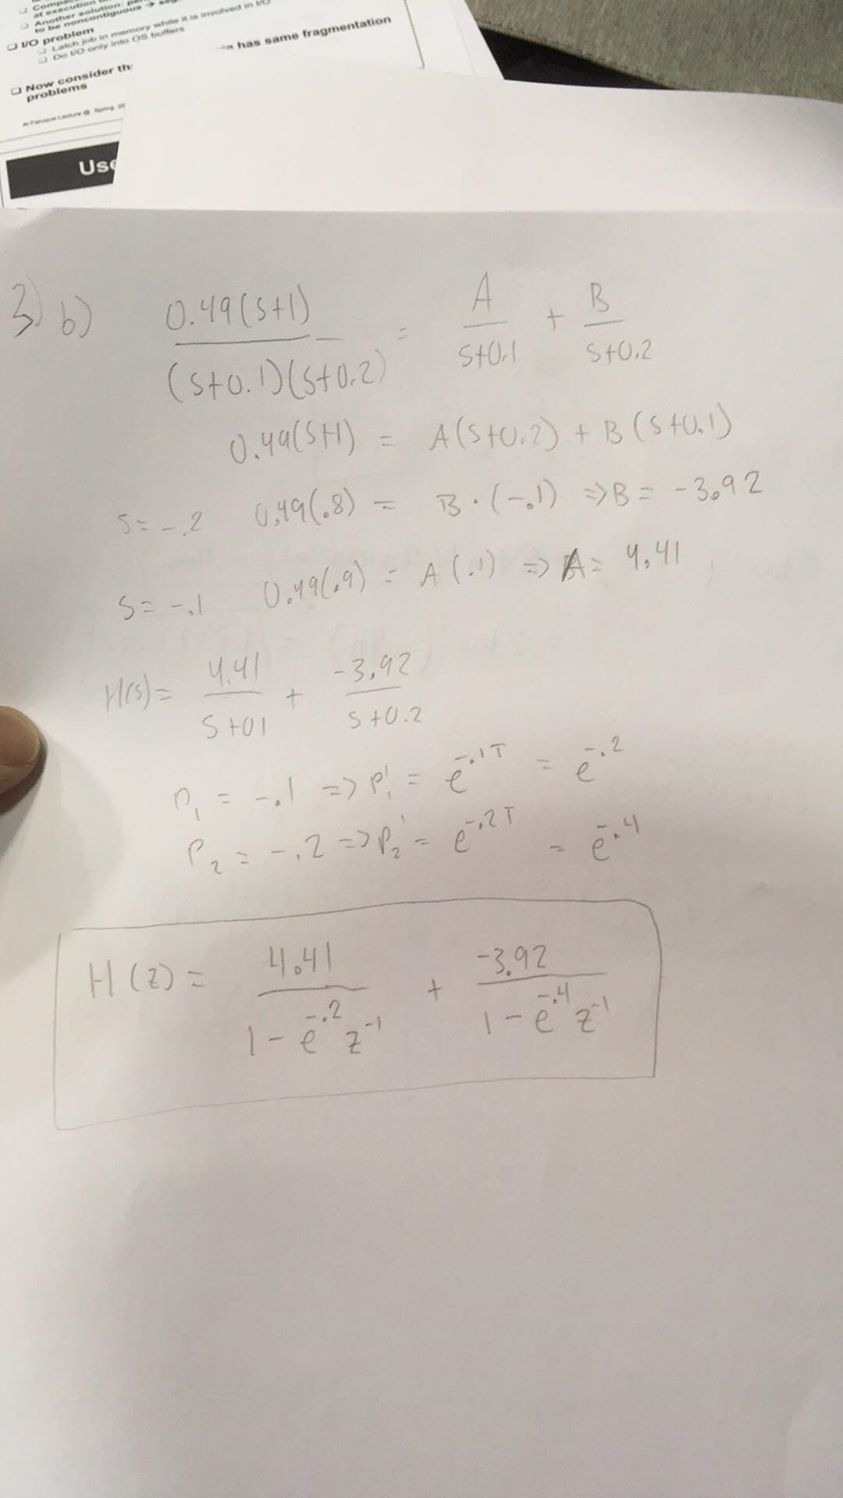 at execution
Another solution:
to be noncontiguous →
I/O problem
Latch job in memory while it is involved in I/O
Do I/O only into OS buffers
has same fragmentation
Now consider th
problems
Use
3) b) 0.49(s+1) / (s+0.1)(s+0.2) = A / s+0.1 + B / s+0.2
0.49(s+1) = A(s+0.2) + B(s+0.1)
s = -.2 0.49(.8) = B · (-.1) => B = -3.92
s = -.1 0.49(.9) = A(.1) => A = 4.41
H(s) = 4.41 / s+01 + -3.92 / s+0.2
P₁ = -.1 => P₁' = e^-.1T = e^-.2
P₂ = -.2 => P₂' = e^-.2T = e^-.4
H(z) = 4.41 / 1 - e^-.2 z^-1 + -3.92 / 1 - e^-.4 z^-1